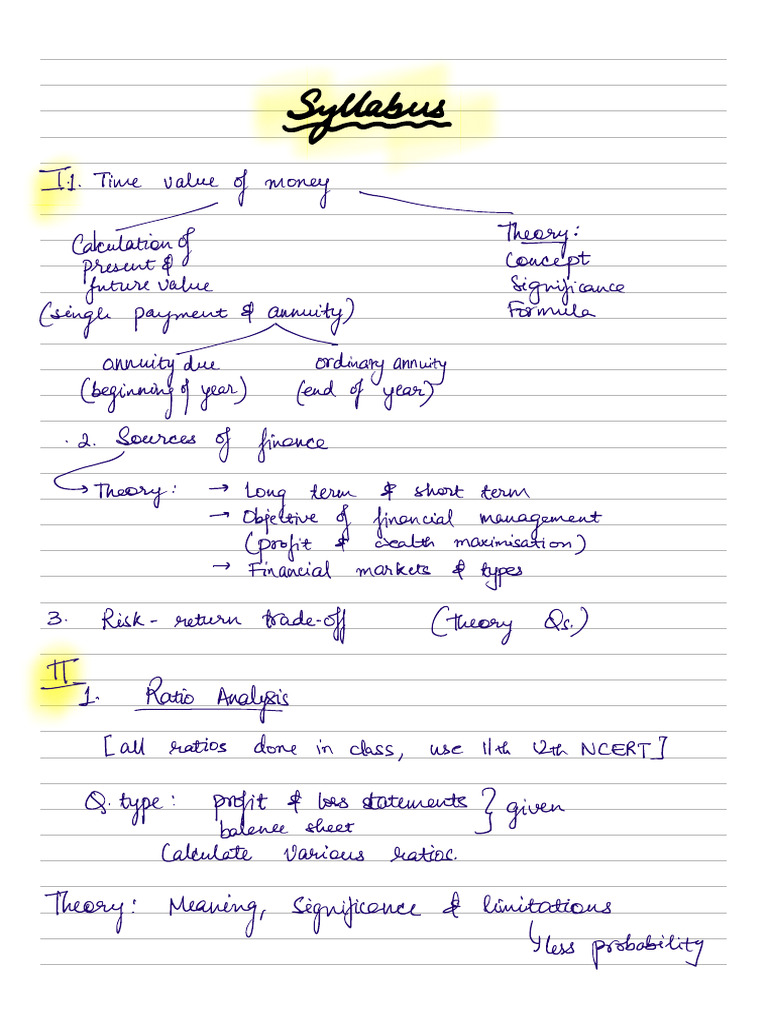 Syllabus
I.1. Time value of money
Calculation of
present &
future value
(single payment & annuity)
Theory:
Concept
Significance
Formula
annuity due
(beginning of year)
ordinary annuity
(end of year)
2. Sources of finance
→ Theory: → Long term & short term
→ Objective of financial management
(profit & wealth maximisation)
→ Financial markets & types
3. Risk-return trade-off (Theory Qs.)
II
1. Ratio Analysis
[all ratios done in class, use 11th 12th NCERT]
Q. type: profit & loss statements } given
balance sheet
Calculate various ratios.
Theory: Meaning, Significance & limitations
↳ less probability